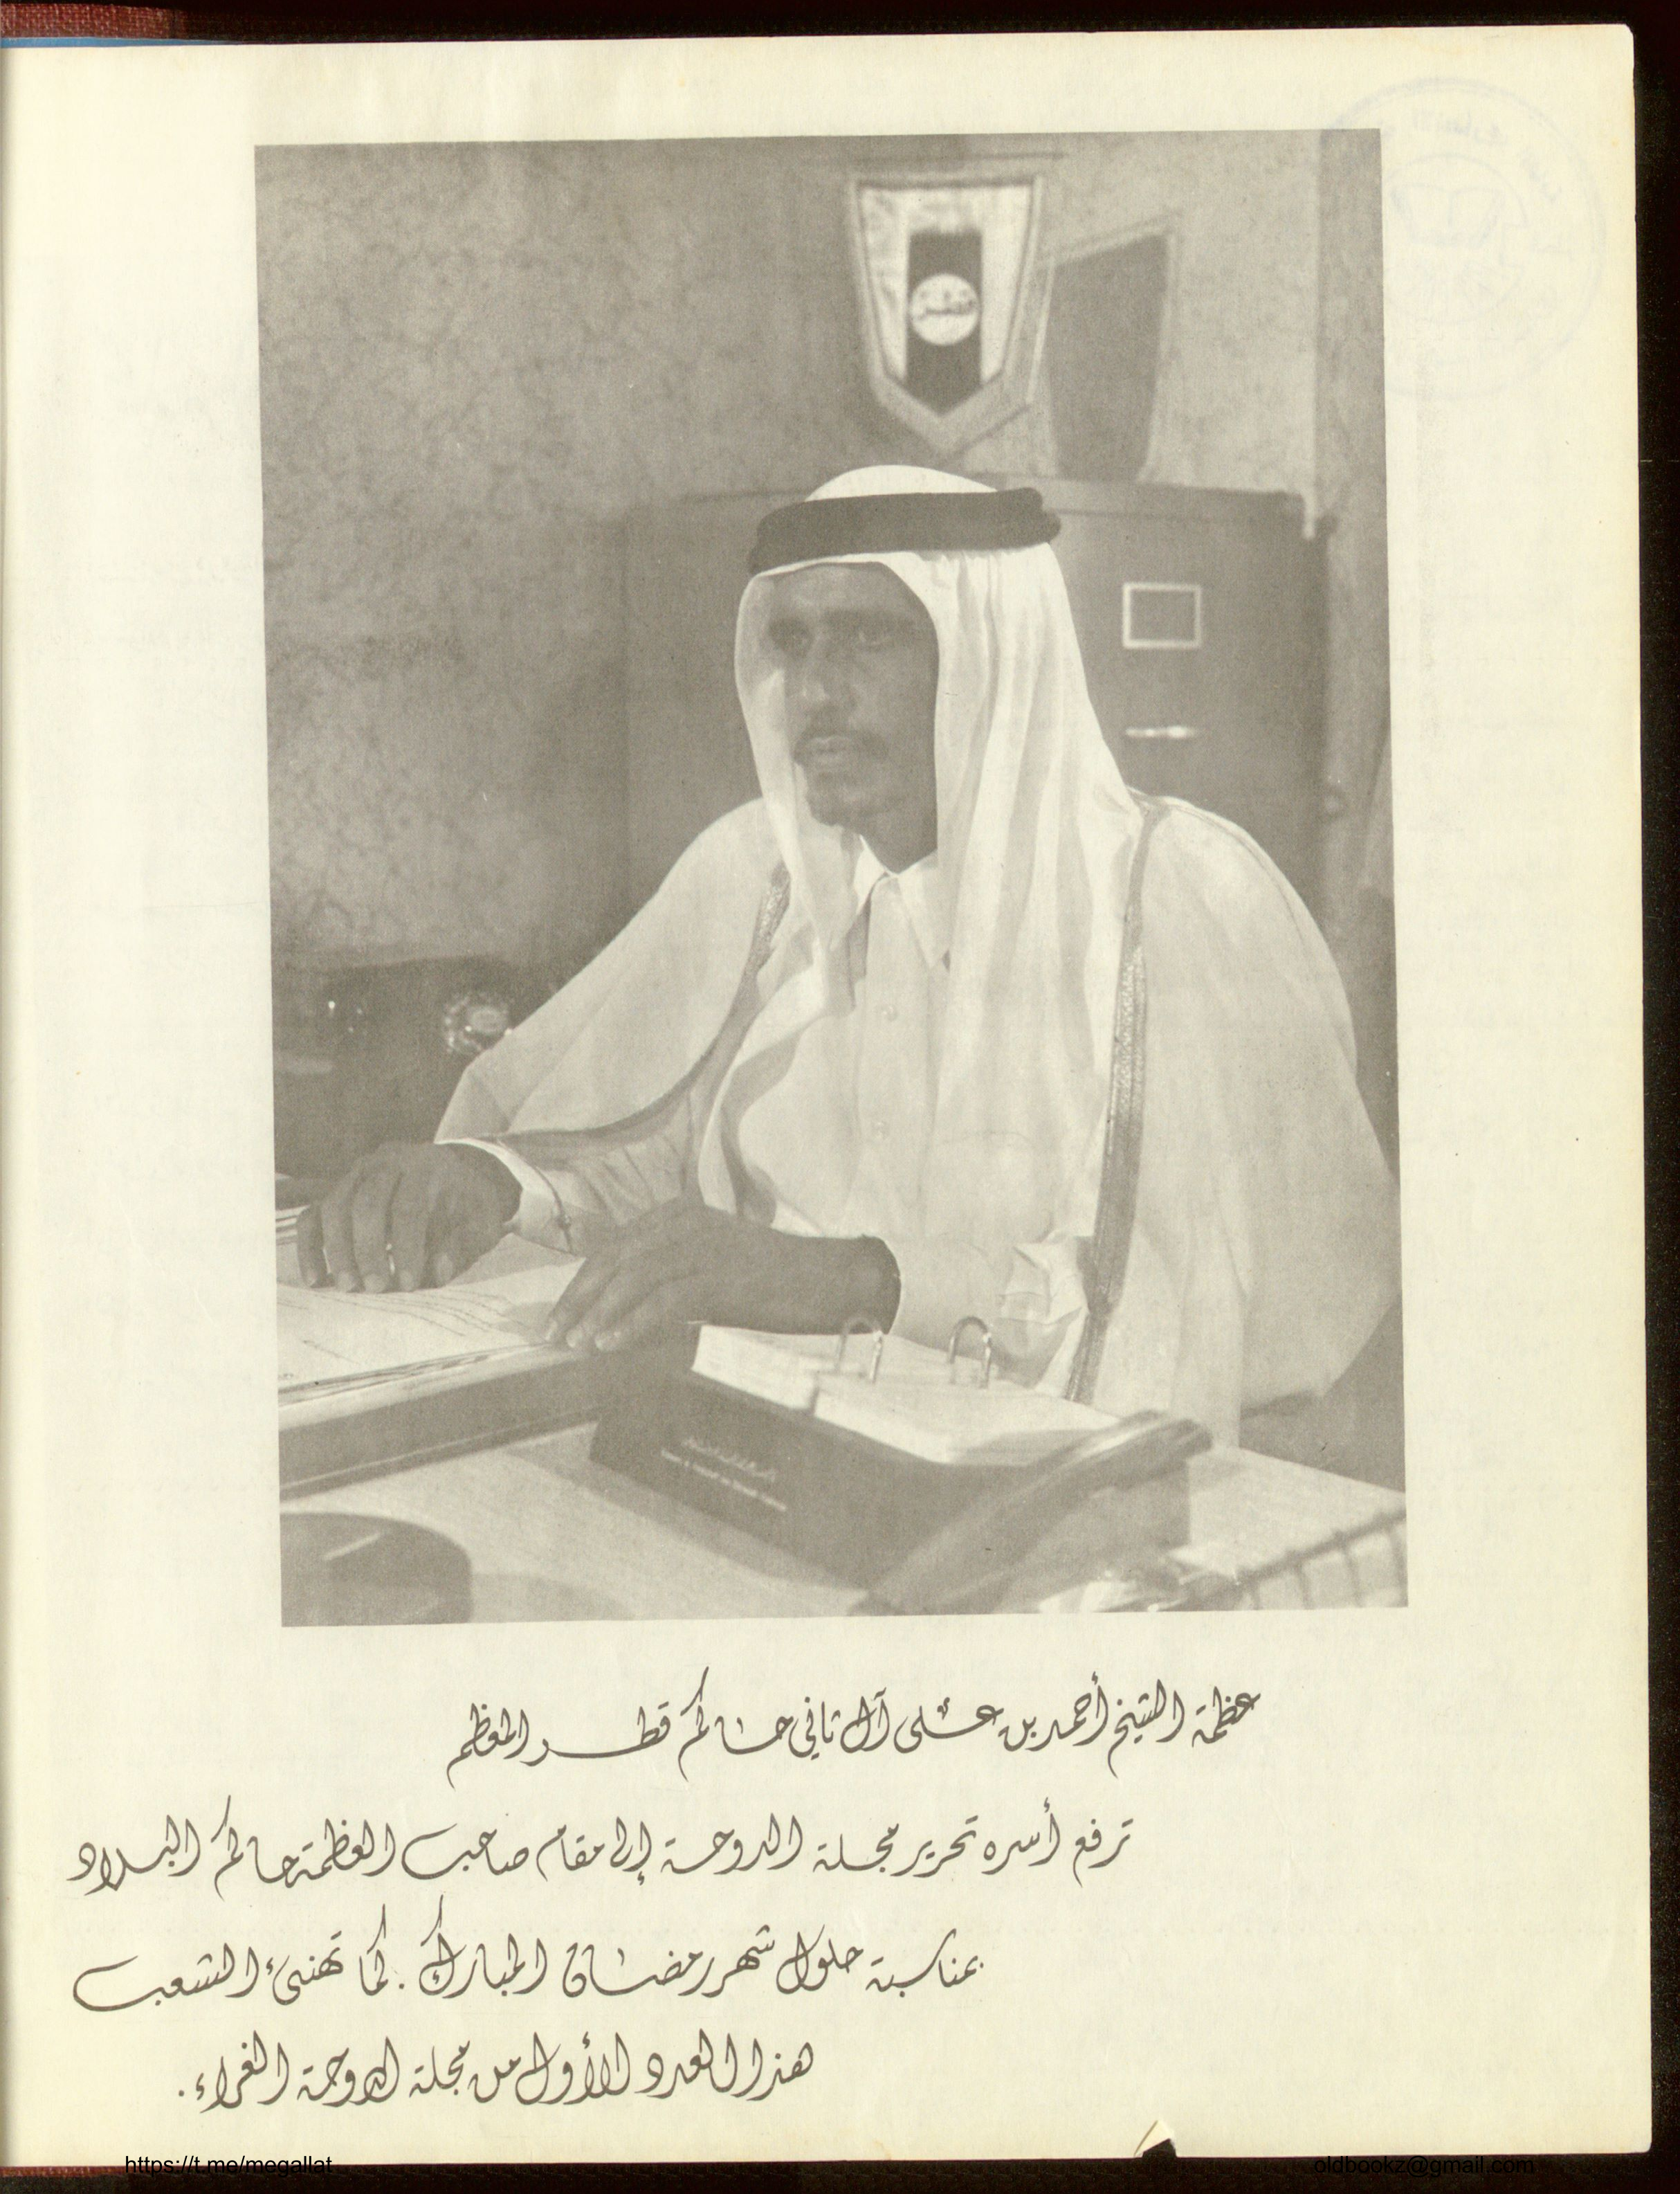 قطر
عظمة الشيخ أحمد بن علي آل ثاني حاكم قطر المعظم
ترفع أسره تحرير مجلة الدوحة إلى مقام صاحب العظمة حاكم البلاد
بمناسبة حلول شهر رمضان المبارك . كما تهنئ الشعب
هذا العدد الأول من مجلة الدوحة الغراء .
https://t.me/megallat
oldbookz@gmail.com